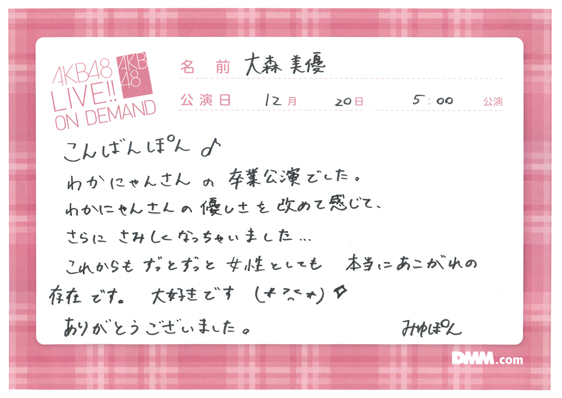 AKB48
LIVE!!
ON DEMAND
AKB
48
名 前 大森美優
公演日 12月 20日 5:00 公演
こんばんぽん♪
わかにゃんさんの卒業公演でした。
わかにゃんさんの優しさを改めて感じて、
さらにさみしくなっちゃいました…
これからもずっとずっと女性としても 本当にあこがれの
存在です。 大好きです (*>^<*)
ありがとうございました。 みゆぽん
DMM.com